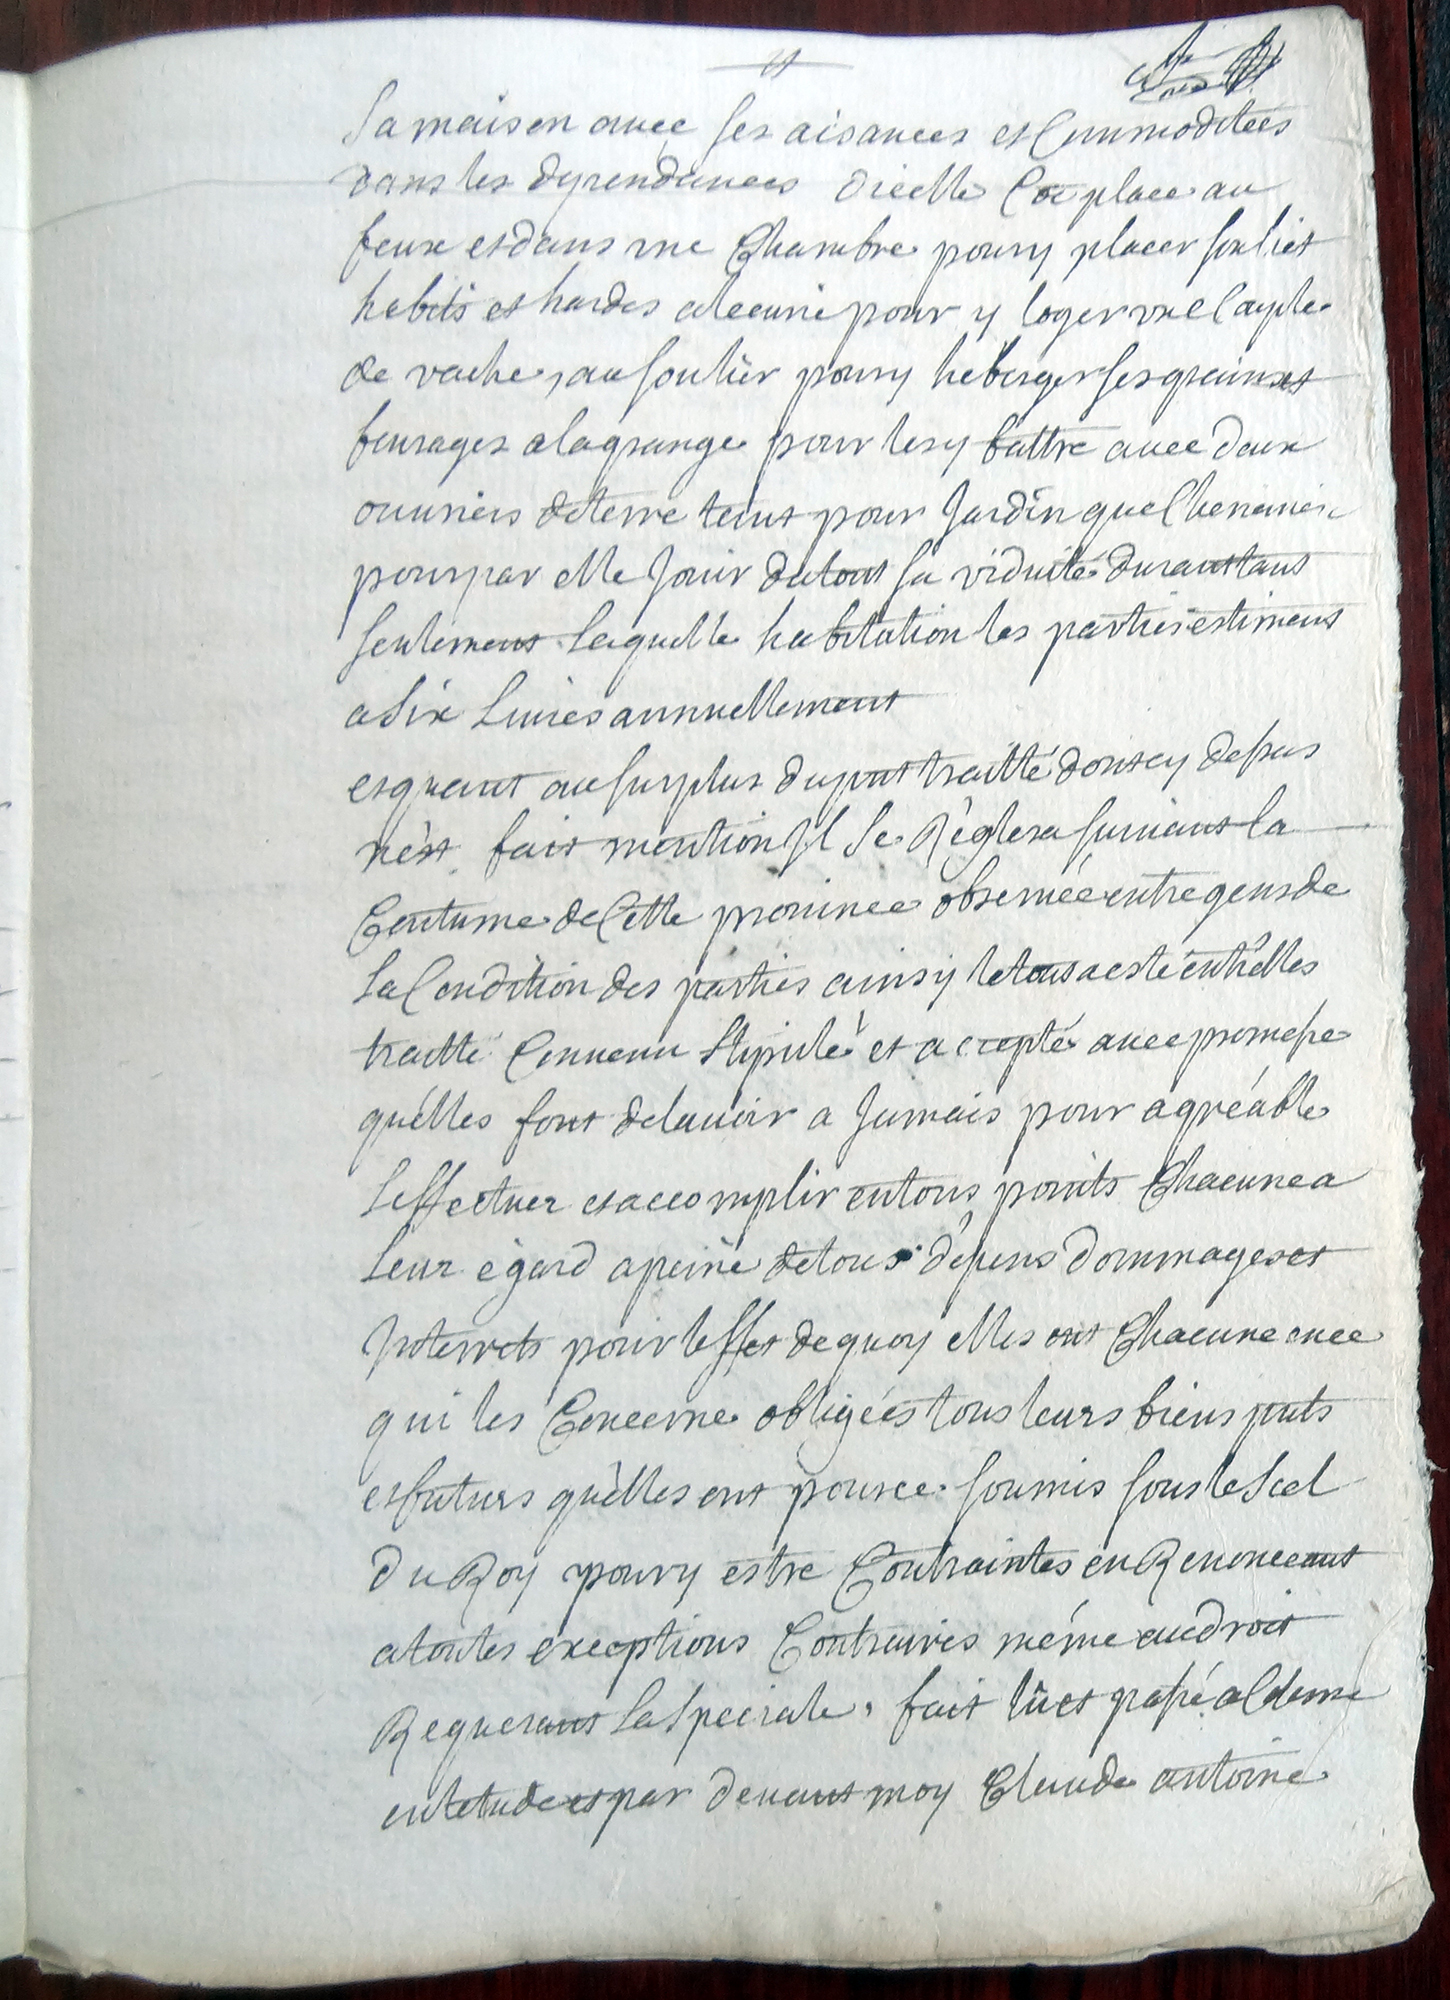 sa maison avec ses aisances et Commoditées
dans les dependances dicelle Sa place au
feux et dans une Chambre pour y placer son lict
habits et hardes alecurie pour y loger une Couple
de vache, au soulier pour y heberger ses grains et
fourages a la grange pour les y battre avec deux
ouvriers de terre tant pour Jardin que Cheneviere
pour par elle Jouir du tout sa viduité durant tans
seulement Laquelle habitation les parties estiment
a Six Livres annuellement
et quant au surplus du pnt traitté dont cy dessus
nest fait mention Il se Règlera suivant la
Coutume de Cette province observée entre gens de
La Condition des parties ainsy le tous a esté entr'elles
traitté Convenu Stipulé et accepté avec promesse
qu'elles font de lavoir a Jamais pour agréable
Leffectuer et accomplir en tous points Chacune a
Leur égard a peine de tous dépens dommages et
Interrets pour leffet de quoy elles ont Chacune en ce
qui les Concerne obligées tous leurs biens pnts
et futurs qu'elles ont pour ce soumis sous le Scel
du Roy pour y estre Contraintes en Renonceant
a toutes exceptions Contraires même au droit
Requerant La Speciale, fait lû et passé a
en letude et par devant moy Claude antoine